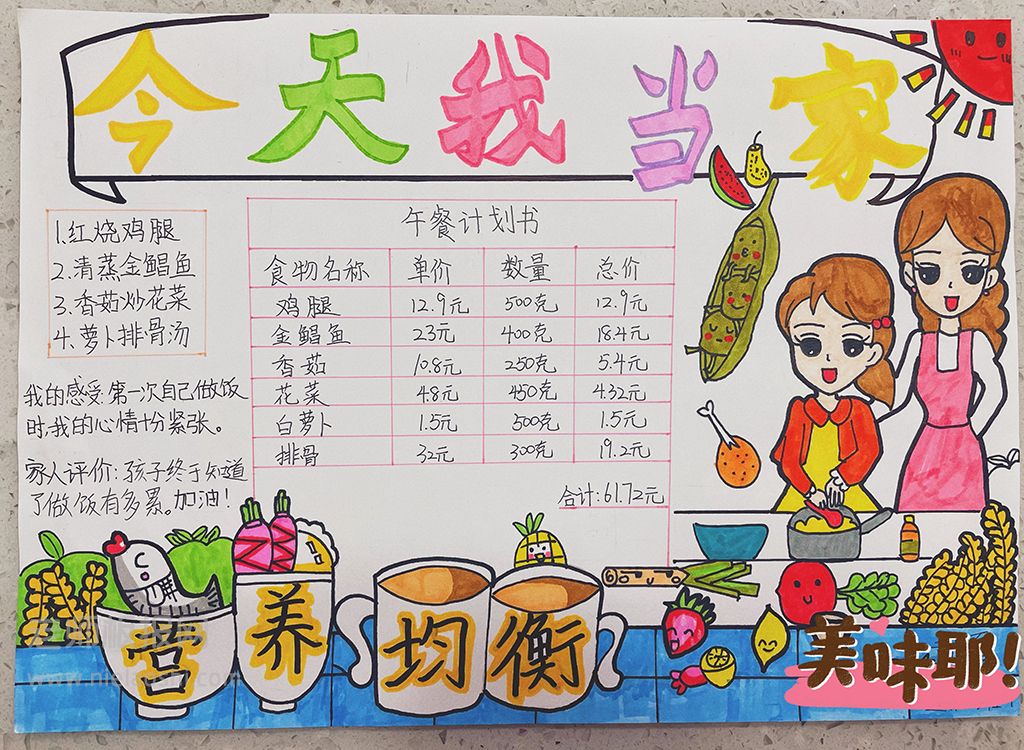 今天我当家
1.红烧鸡腿
2.清蒸金鲳鱼
3.香菇炒花菜
4.萝卜排骨汤
午餐计划书
食物名称 单价 数量 总价
鸡腿 12.9元 500克 12.9元
金鲳鱼 23元 400克 18.4元
香菇 10.8元 250克 5.4元
花菜 4.8元 450克 4.32元
白萝卜 1.5元 500克 1.5元
排骨 32元 300克 19.2元
合计:61.72元
我的感受:第一次自己做饭
时,我的心情十份紧张。
家人评价:孩子终于知道
了做饭有多累。加油!
营养均衡
美味耶!